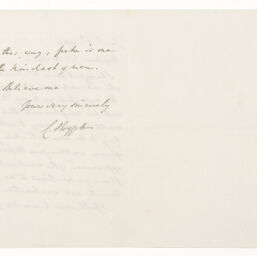 this way, for he is one
the kindest of men.
Believe me
Yours very sincerely